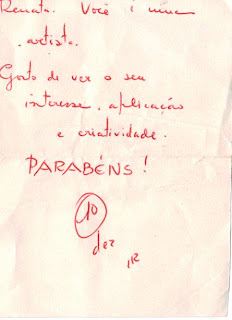 Renata. Você é uma
artista.
Gosto de ver o seu
interesse, aplicação
e criatividade.
PARABÉNS!
10
dez